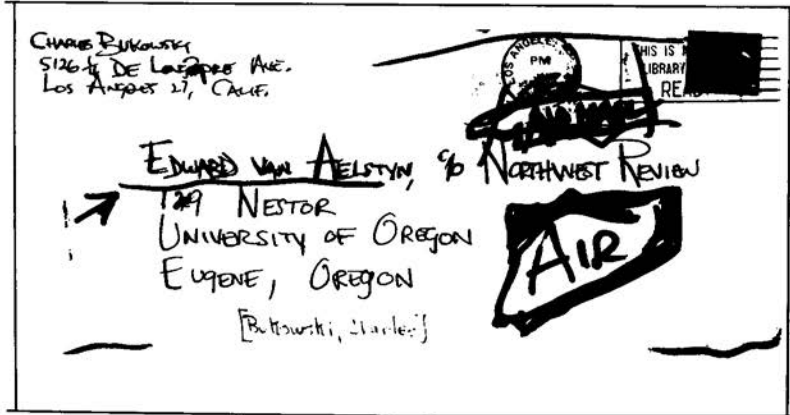 CHARLES BUKOWSKI
5126 ¼ DE LONGPRE AVE.
LOS ANGELES 27, CALIF.
LOS ANGELES
PM
THIS IS
LIBRARY
AIR MAIL
EDWARD VAN AELSTYN, c/o NORTHWEST REVIEW
129 NESTOR
UNIVERSITY OF OREGON
EUGENE, OREGON
AIR
[Bukowski, Charles]